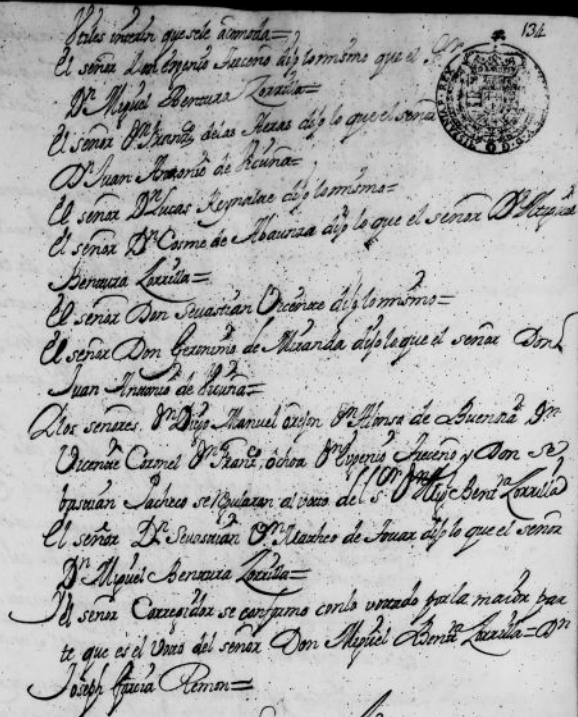 134
Vtiles interin que se le acomoda=
El señor Don Eugenio Treceño dijo lo mismo que el Sr
Dn Miguel Bentura Zorrilla=
El señor Dn Franco de las Heras dijo lo que el señor
Dn Juan Antonio de Vicuña=
El señor Dn Lucas Reynalte dijo lo mismo=
El señor Dn Cosme de Abaunza dijo lo que el señor Dn Miguel
Bentura Zorrilla=
El señor Don Sevastian Vicente dijo lo mismo=
El señor Don Geronimo de Miranda dijo lo que el señor Don
Juan Antonio de Vicuña=
Dn Diego Manuel Dn Alonso de Buendia Dn
Vicente Coronel Dn Franco ochoa Dn Eugenio Treceño y Don Se
bastian Pacheco se Regularan al voto del sr Dn Migl Benta Zorrilla
El señor Dn Sevastian Dn Matheo de Tovar dijo lo que el señor
Dn Miguel Bentura Zorrilla=
El señor Corregidor se conformo con lo votado por la maior par
te que es el Voto del señor Don Miguel Benta Zorrilla= Dn
Joseph Garcia Remon=